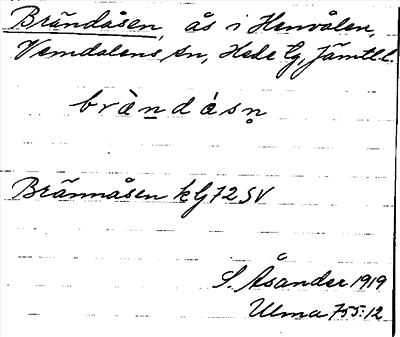 Brändåsen, ås i Henvålen,
Vemdalens sn, Hede tg, Jämtl. l.
bràndåsn̥
Brännåsen kg 72 SV
S. Åsander 1919
Ulma 755:12